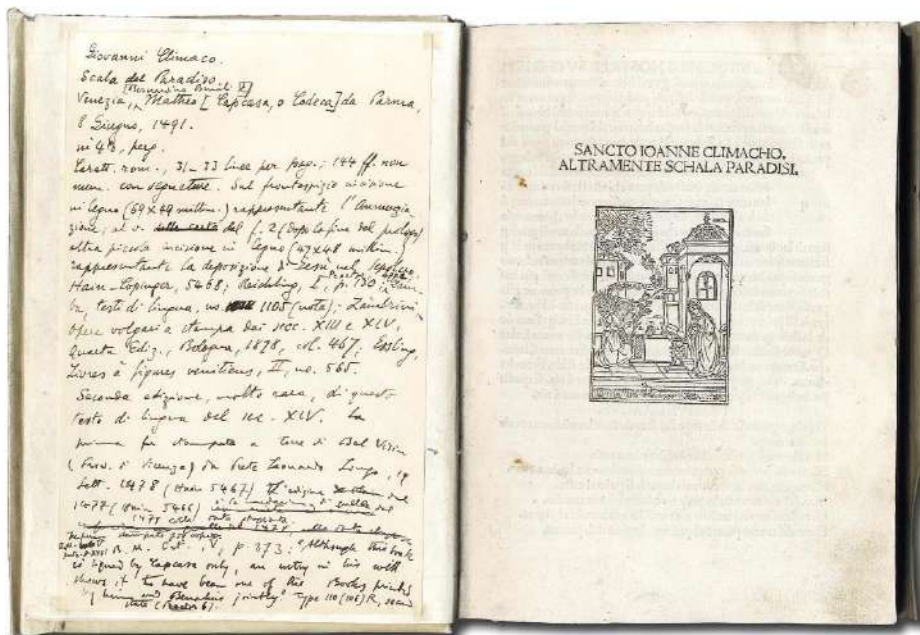 Giovanni Climaco.
Scala del Paradiso.
[Bernardino Benali e]
Venezia, Mattheo [Capcasa, o Codeca] da Parma,
8 Giugno, 1491.
in 4º, perg.
Caratt. rom., 31-33 linee per pag.; 144 ff. non
num. con segnature. Sul frontespizio incisione
in legno (69 x 49 millim.) rappresentante l'Annunzia-
zione; al v. del f. 2 (dopo la fine del prologo)
altra piccola incisione in legno (47 x 48 millim.)
rappresentante la deposizione di Gesù nel sepolcro.
Hain-Copinger, 5468; Reichling, I, p. 130;
testi di lingua, no. 1105 (nota); Zambrini,
Opere volgari a stampa dei secc. XIII e XIV,
quarta Ediz., Bologna, 1878, col. 467; Essling,
Livres à figures vénitiens, II, no. 565.
Seconda edizione, molto rara, di questo
testo di lingua del sec. XIV. La
prima fu stampata a Torre di Bel Vicin
(Prov. di Vicenza) da Leonardo Longo, 19
Sett. 1478 (Hain 5467) L'edizione del
1477 (Hain 5466)
B. M. Cat., V, p. 373; "Although this book
is signed by Capcasa only, an entry in his will
shows it to have been one of the Books printed
by him and Benalius jointly." Type 110 (106) R, second
state (Proctor 6).
SANCTO IOANNE CLIMACHO.
ALTRAMENTE SCHALA PARADISI.